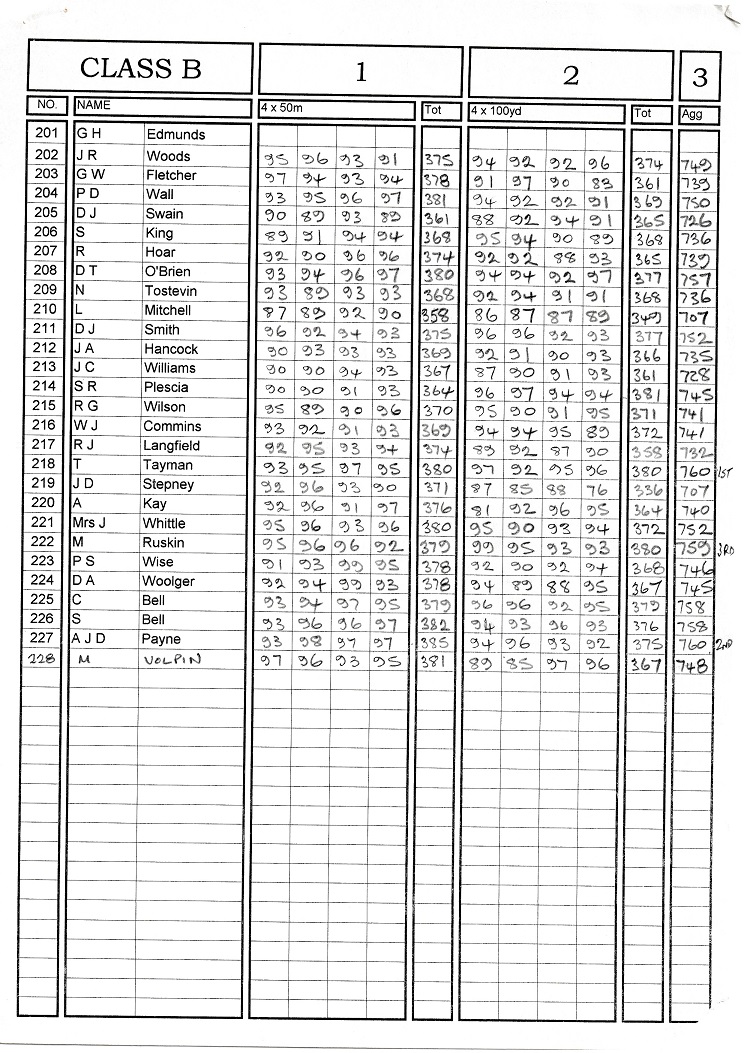 CLASS B 1 2 3
NO. NAME 4 x 50m Tot 4 x 100yd Tot Agg
201 G H Edmunds
202 J R Woods 95 96 93 91 375 94 92 92 96 374 749
203 G W Fletcher 97 94 93 94 378 91 97 90 83 361 739
204 P D Wall 93 95 96 97 381 94 92 92 91 369 750
205 D J Swain 90 89 93 89 361 88 92 94 91 365 726
206 S King 89 91 94 94 368 95 94 90 89 368 736
207 R Hoar 92 90 96 96 374 92 92 88 93 365 739
208 D T O'Brien 93 94 96 97 380 94 94 92 97 377 757
209 N Tostevin 93 89 93 93 368 92 94 91 91 368 736
210 L Mitchell 87 89 92 90 358 86 87 87 89 349 707
211 D J Smith 96 92 94 93 375 96 96 92 93 377 752
212 J A Hancock 90 93 93 93 369 92 91 90 93 366 735
213 J C Williams 90 90 94 93 367 87 90 91 93 361 728
214 S R Plescia 90 90 91 93 364 96 97 94 94 381 745
215 R G Wilson 95 89 90 96 370 95 90 91 95 371 741
216 W J Commins 93 92 91 93 369 94 94 95 89 372 741
217 R J Langfield 92 95 93 94 374 89 92 87 90 358 732
218 T Tayman 93 95 97 95 380 97 92 95 96 380 760 1ST
219 J D Stepney 92 96 93 90 371 87 85 88 76 336 707
220 A Kay 92 96 91 97 376 81 92 96 95 364 740
221 Mrs J Whittle 95 96 93 96 380 95 90 93 94 372 752
222 M Ruskin 95 96 96 92 379 99 95 93 93 380 759 3RD
223 P S Wise 91 93 99 95 378 92 90 92 94 368 746
224 D A Woolger 92 94 99 93 378 94 89 88 95 367 745
225 C Bell 93 94 97 95 379 96 96 92 95 379 758
226 S Bell 93 96 96 97 382 94 93 96 93 376 758
227 A J D Payne 93 98 97 97 385 94 96 93 92 375 760 2ND
228 M VOLPIN 97 96 93 95 381 89 85 97 96 367 748